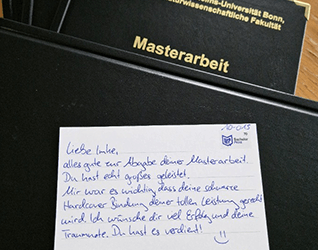 -Universität Bonn,
turwissenschaftliche Fakultät
Masterarbeit
10-013
Liebe Imke,
alles gute zur Abgabe deiner Masterarbeit.
Du hast echt großes geleistet.
Mir war es wichtig dass deine schwarze
Hardcover Bindung deiner tollen Leistung gerecht
wird. Ich wünsche dir viel Erfolg und deine
Traumnote. Du hast es verdient!